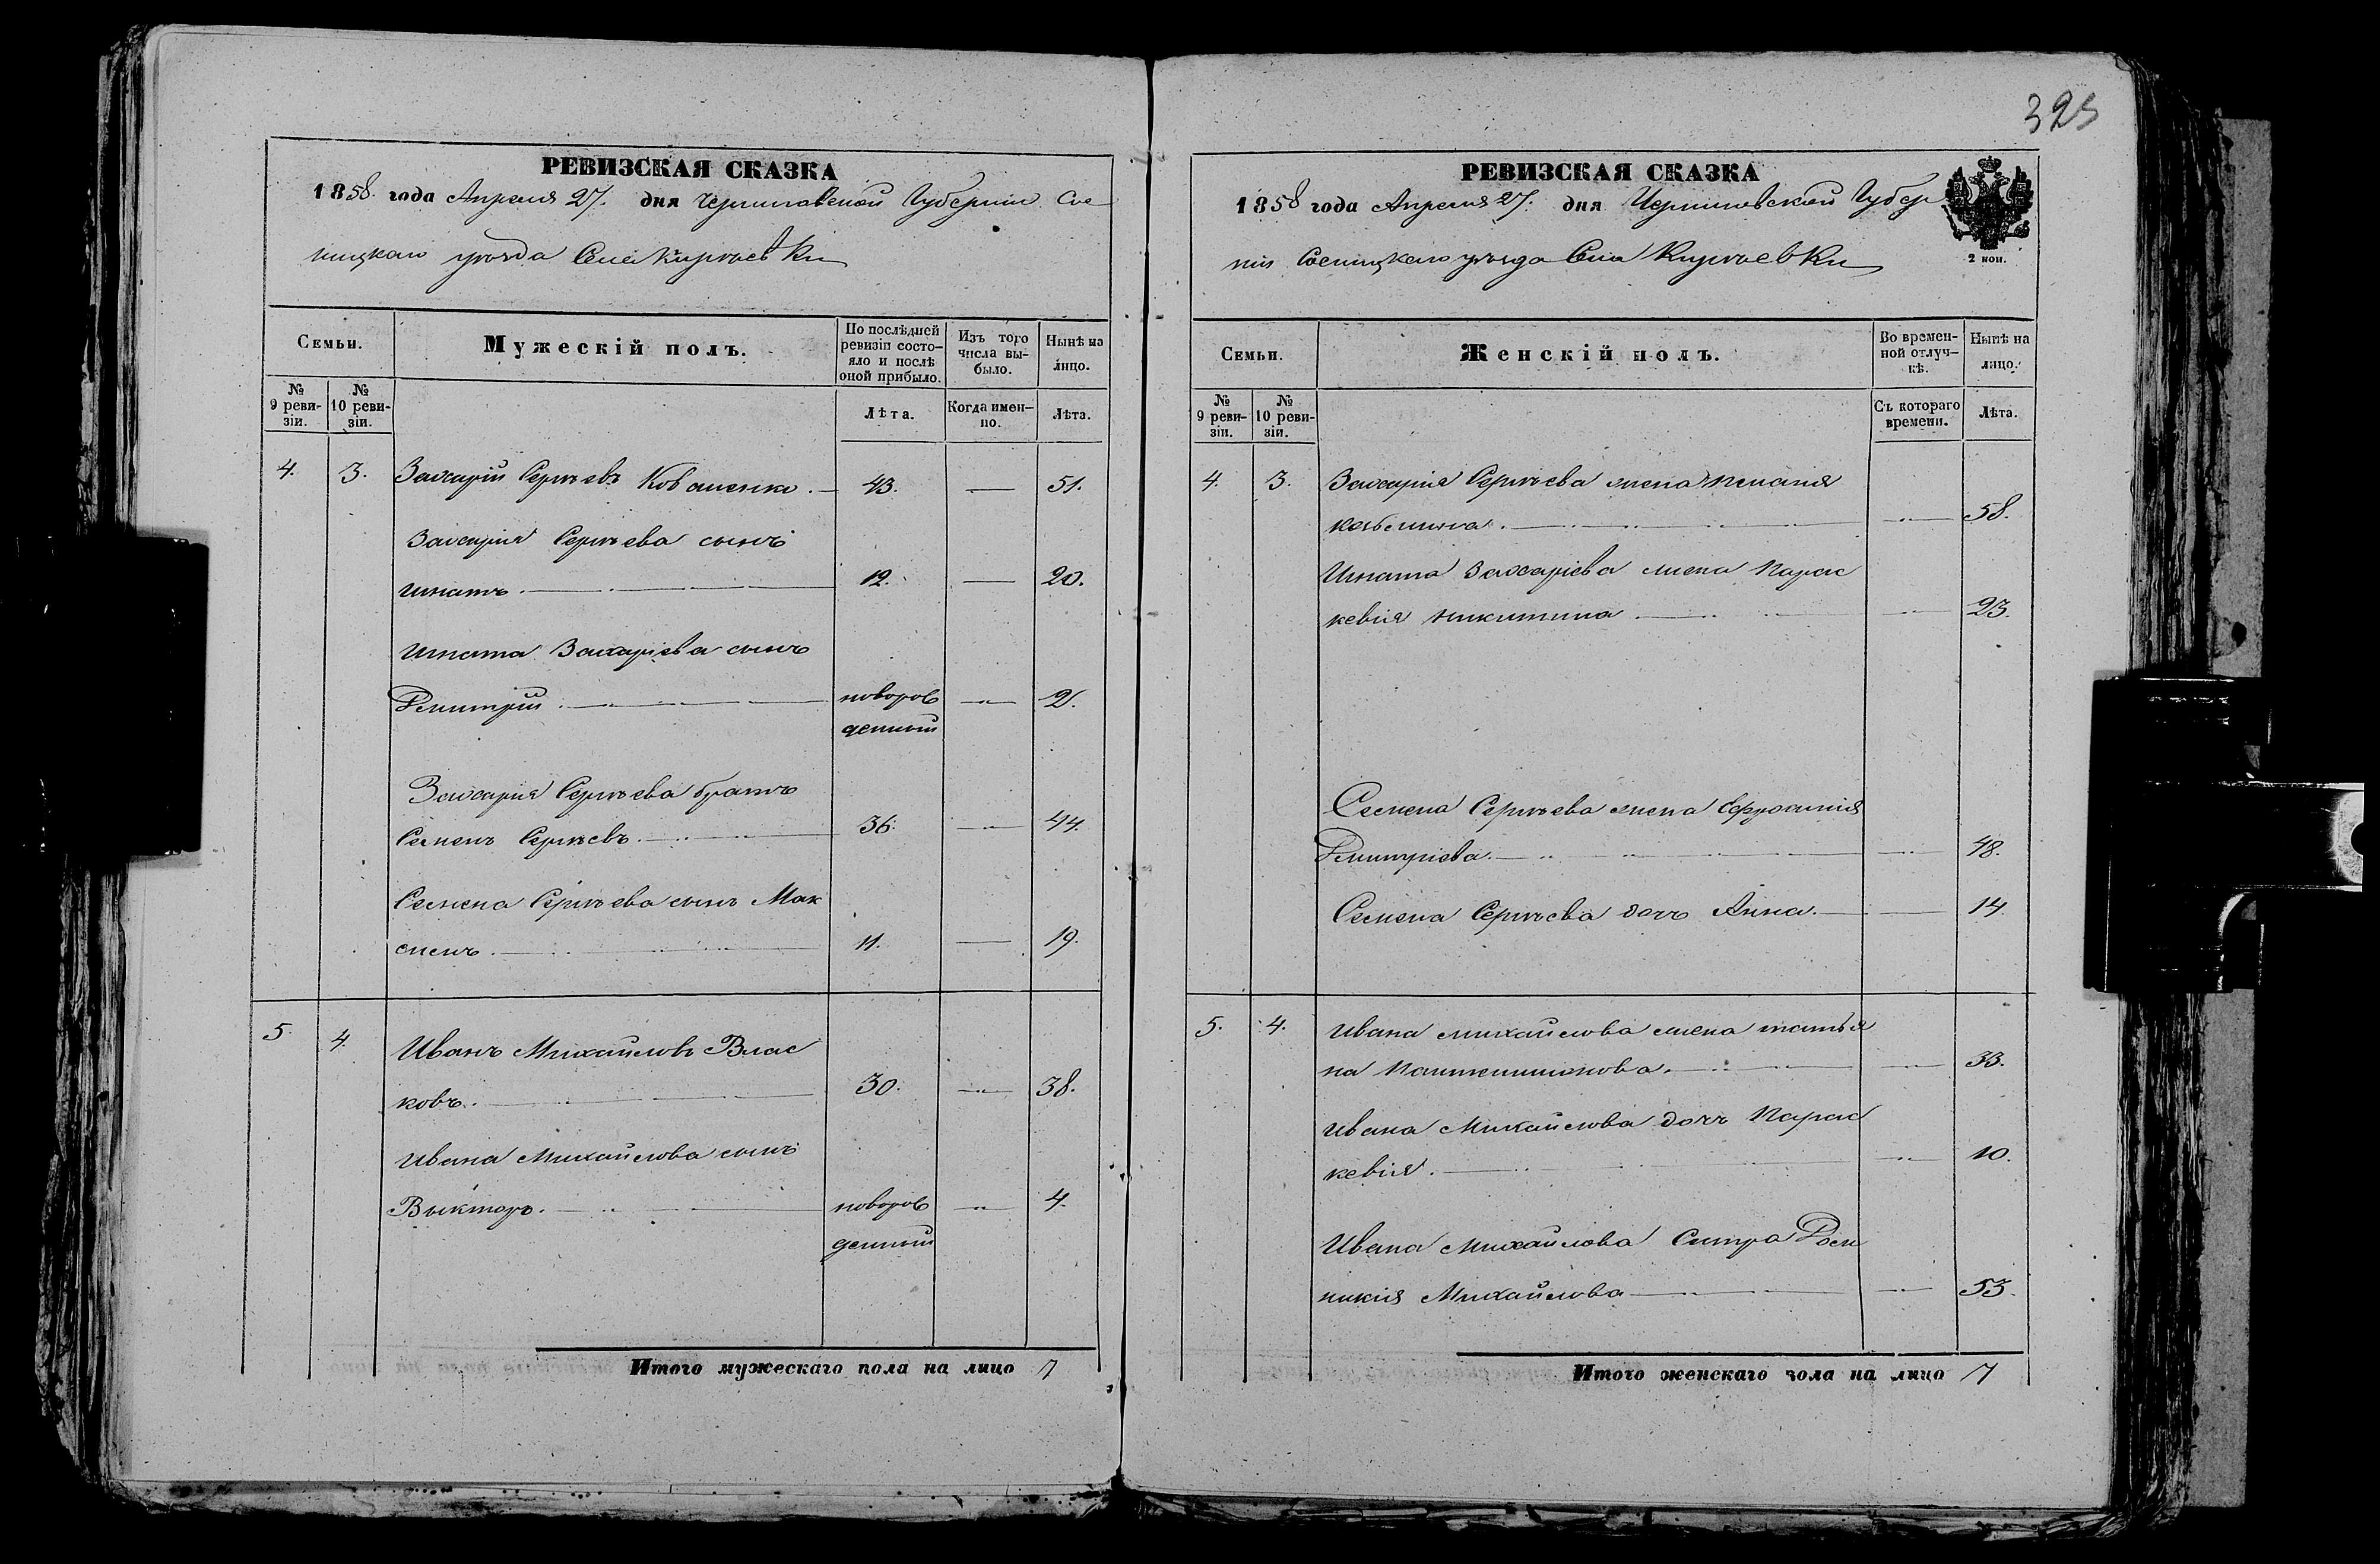 325
РЕВИЗСКАЯ СКАЗКА
1858. года Апреля 27. дня Черниговской Губернии Сос
ницкаго уѣзда Села Киріевки
Семьи.
Мужескій полъ.
По послѣдней ревизіи состо-
яло и послѣ
оной прибыло.
Изъ того
числа вы-
было.
Нынѣ на
лицо.
№
9 реви-
зіи.
№
10 реви-
зіи.
Лѣта.
Когда имен-
но.
Лѣта.
4. 3. Захарій Сергѣевъ Коваленко. 43. — 51.
Захарія Сергѣева сынъ
Игнатъ. 12. — 20.
Игната Захаріева сынъ
Дмитрій. новорож — 2.
денный
Захарія Сергѣева братъ
Семенъ Сергѣевъ. 36. — 44.
Семена Сергѣева сынъ Мак
симъ. 11. — 19.
5. 4. Иванъ Михайловъ Влас
ковъ. 30. — 38.
Ивана Михайлова сынъ
Выкторъ. новорож — 4.
денный
Итого мужескаго пола на лицо 7
РЕВИЗСКАЯ СКАЗКА
1858 года Апреля 27. дня Черниговской Губер
ніи Сосницкаго уѣзда Села Киріевки
2 коп.
Семьи.
Женскій полъ.
Во времен-
ной отлуч-
кѣ.
Нынѣ на
лицо.
№
9 реви-
зіи.
№
10 реви-
зіи.
Съ котораго
времени.
Лѣта.
4. 3. Захарія Сергѣева жена
— 58.
Игната Захаріева жена Парас
кевія Никитина — 23.
Семена Сергѣева жена Ефросинія
Дмитріева. — 48.
Семена Сергѣева дочь Анна. — 14.
5. 4. Ивана Михайлова жена татья
на Пантелимонова. — 33.
Ивана Михайлова дочь Парас
кевія. — 10.
Ивана Михайлова Систра Дом
никія Михайлова — 53.
Итого женскаго пола на лицо 7